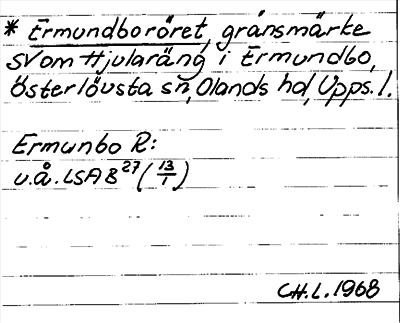 * Ermundboröret, gränsmärke
SV om Hjularäng i Ermundbo,
Österlövsta sn, Olands hd, Upps. l.
Ermunbo R:
u.å. LSA B 27 (13/1)
CH.L. 1968